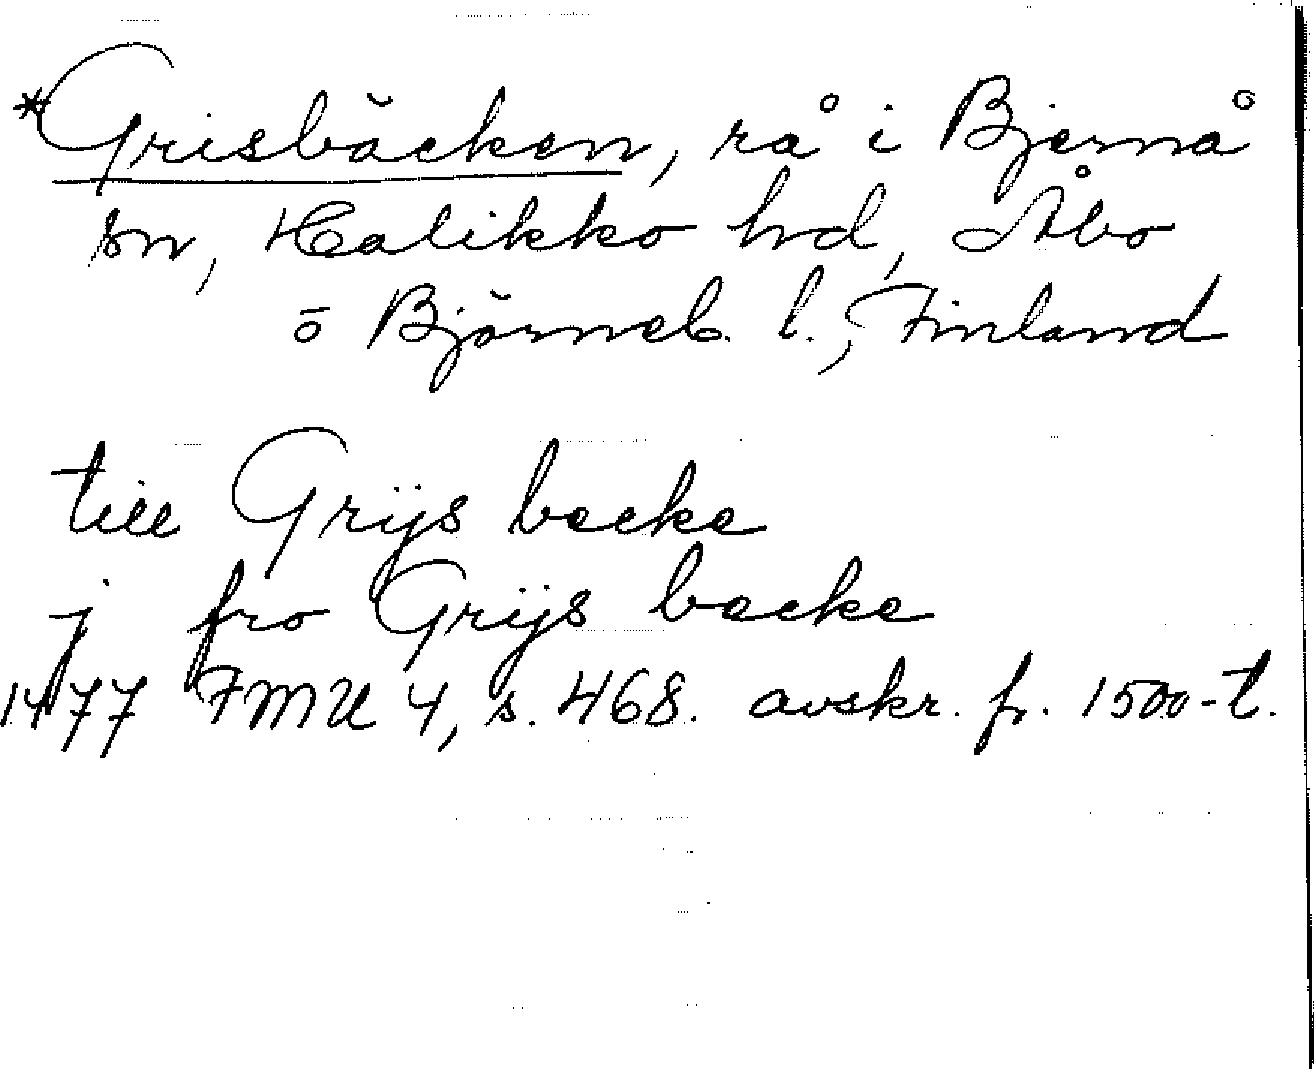 *Grisbäcken, rå i Bjernå
sn, Halikko hd, Åbo
o Björneb. l., Finland
till Grijs becke
j fro Grijs becke
1477 FMU 4, s. 468. avskr. fr. 1500-t.